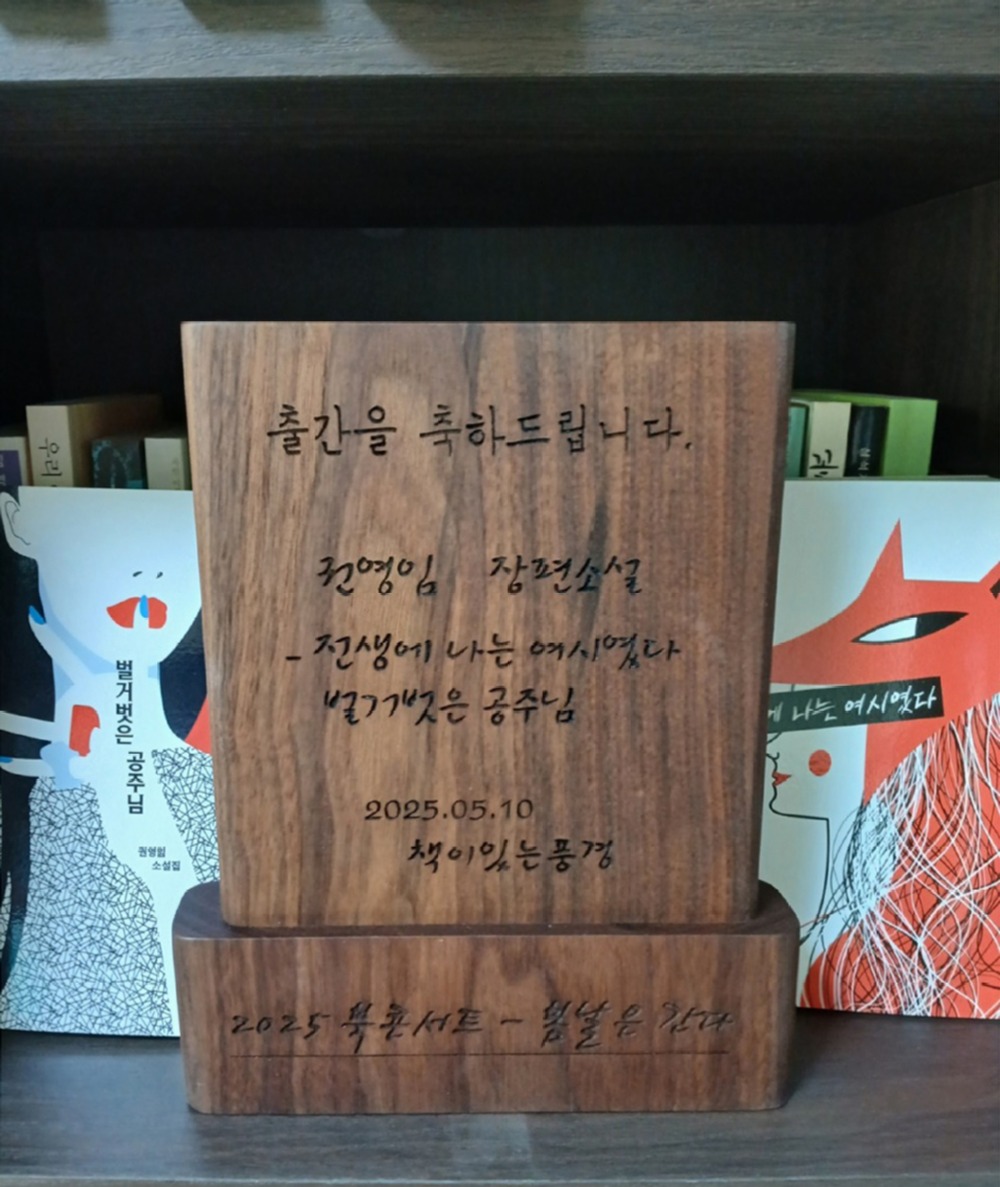 출간을 축하드립니다.
권영임 장편소설
- 전생에 나는 여시였다
벌거벗은 공주님
2025.05.10
책이있는풍경
2025 북콘서트 - 봄날은 간다
벌거벗은 공주님
권영임
소설집
에 나는 여시였다
우리